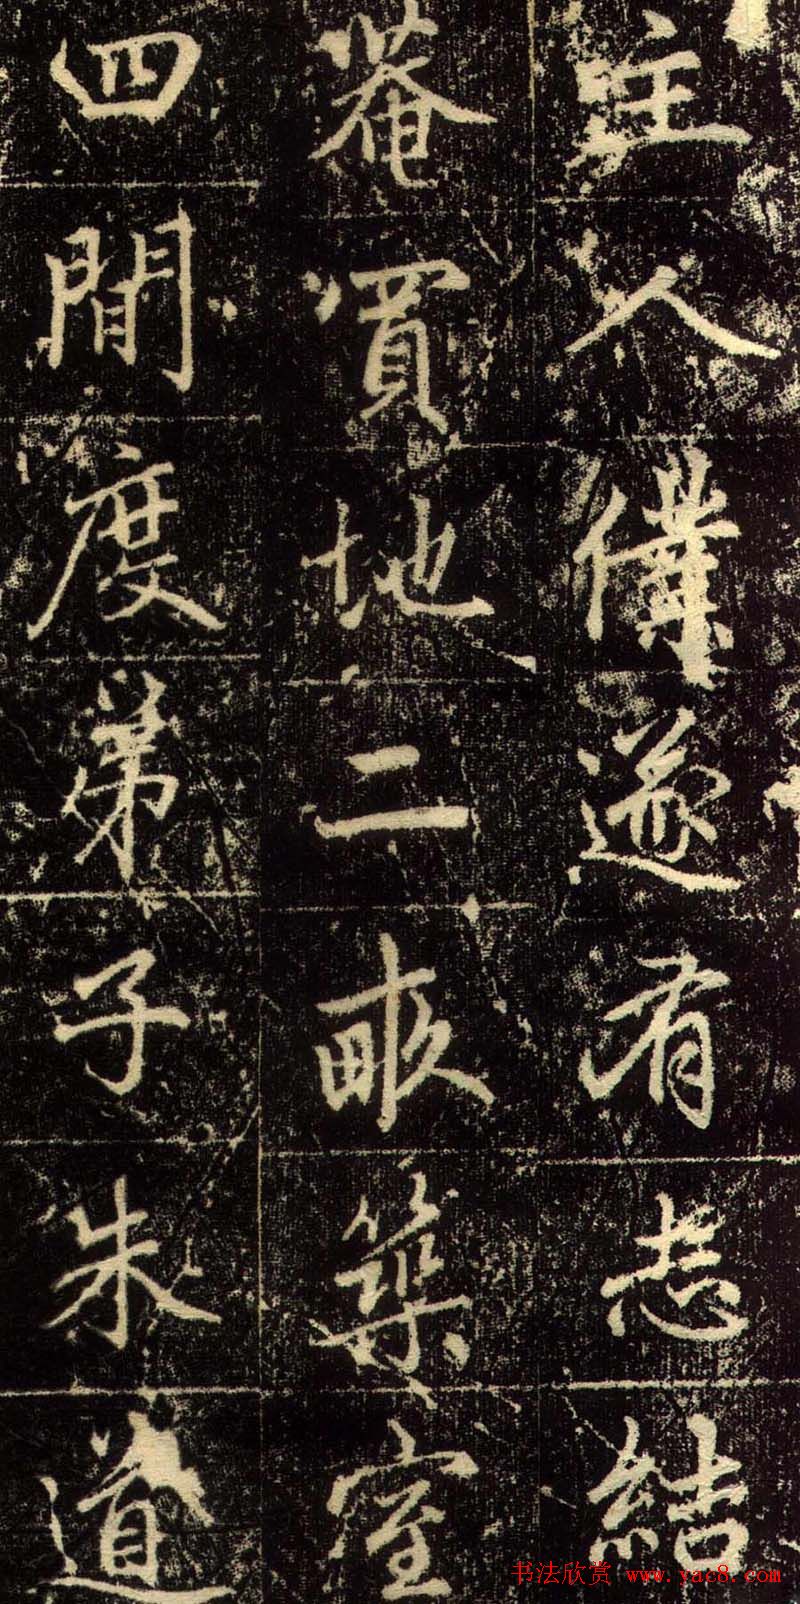 主人僕遂有志結
菴買地二畝築室
四間度弟子朱道
书法欣赏 www.yac8.com